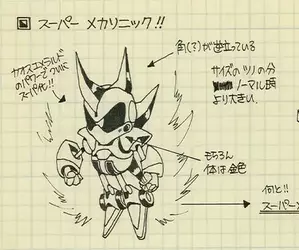 スーパー メカソニック!!
角(?)が逆立っている
カオスエメラルド
のパワーでついに
スーパー化!!
サイズのツノの分
ノーマル時
より大きい.
もちろん
体は金色
何と!!
スーパー